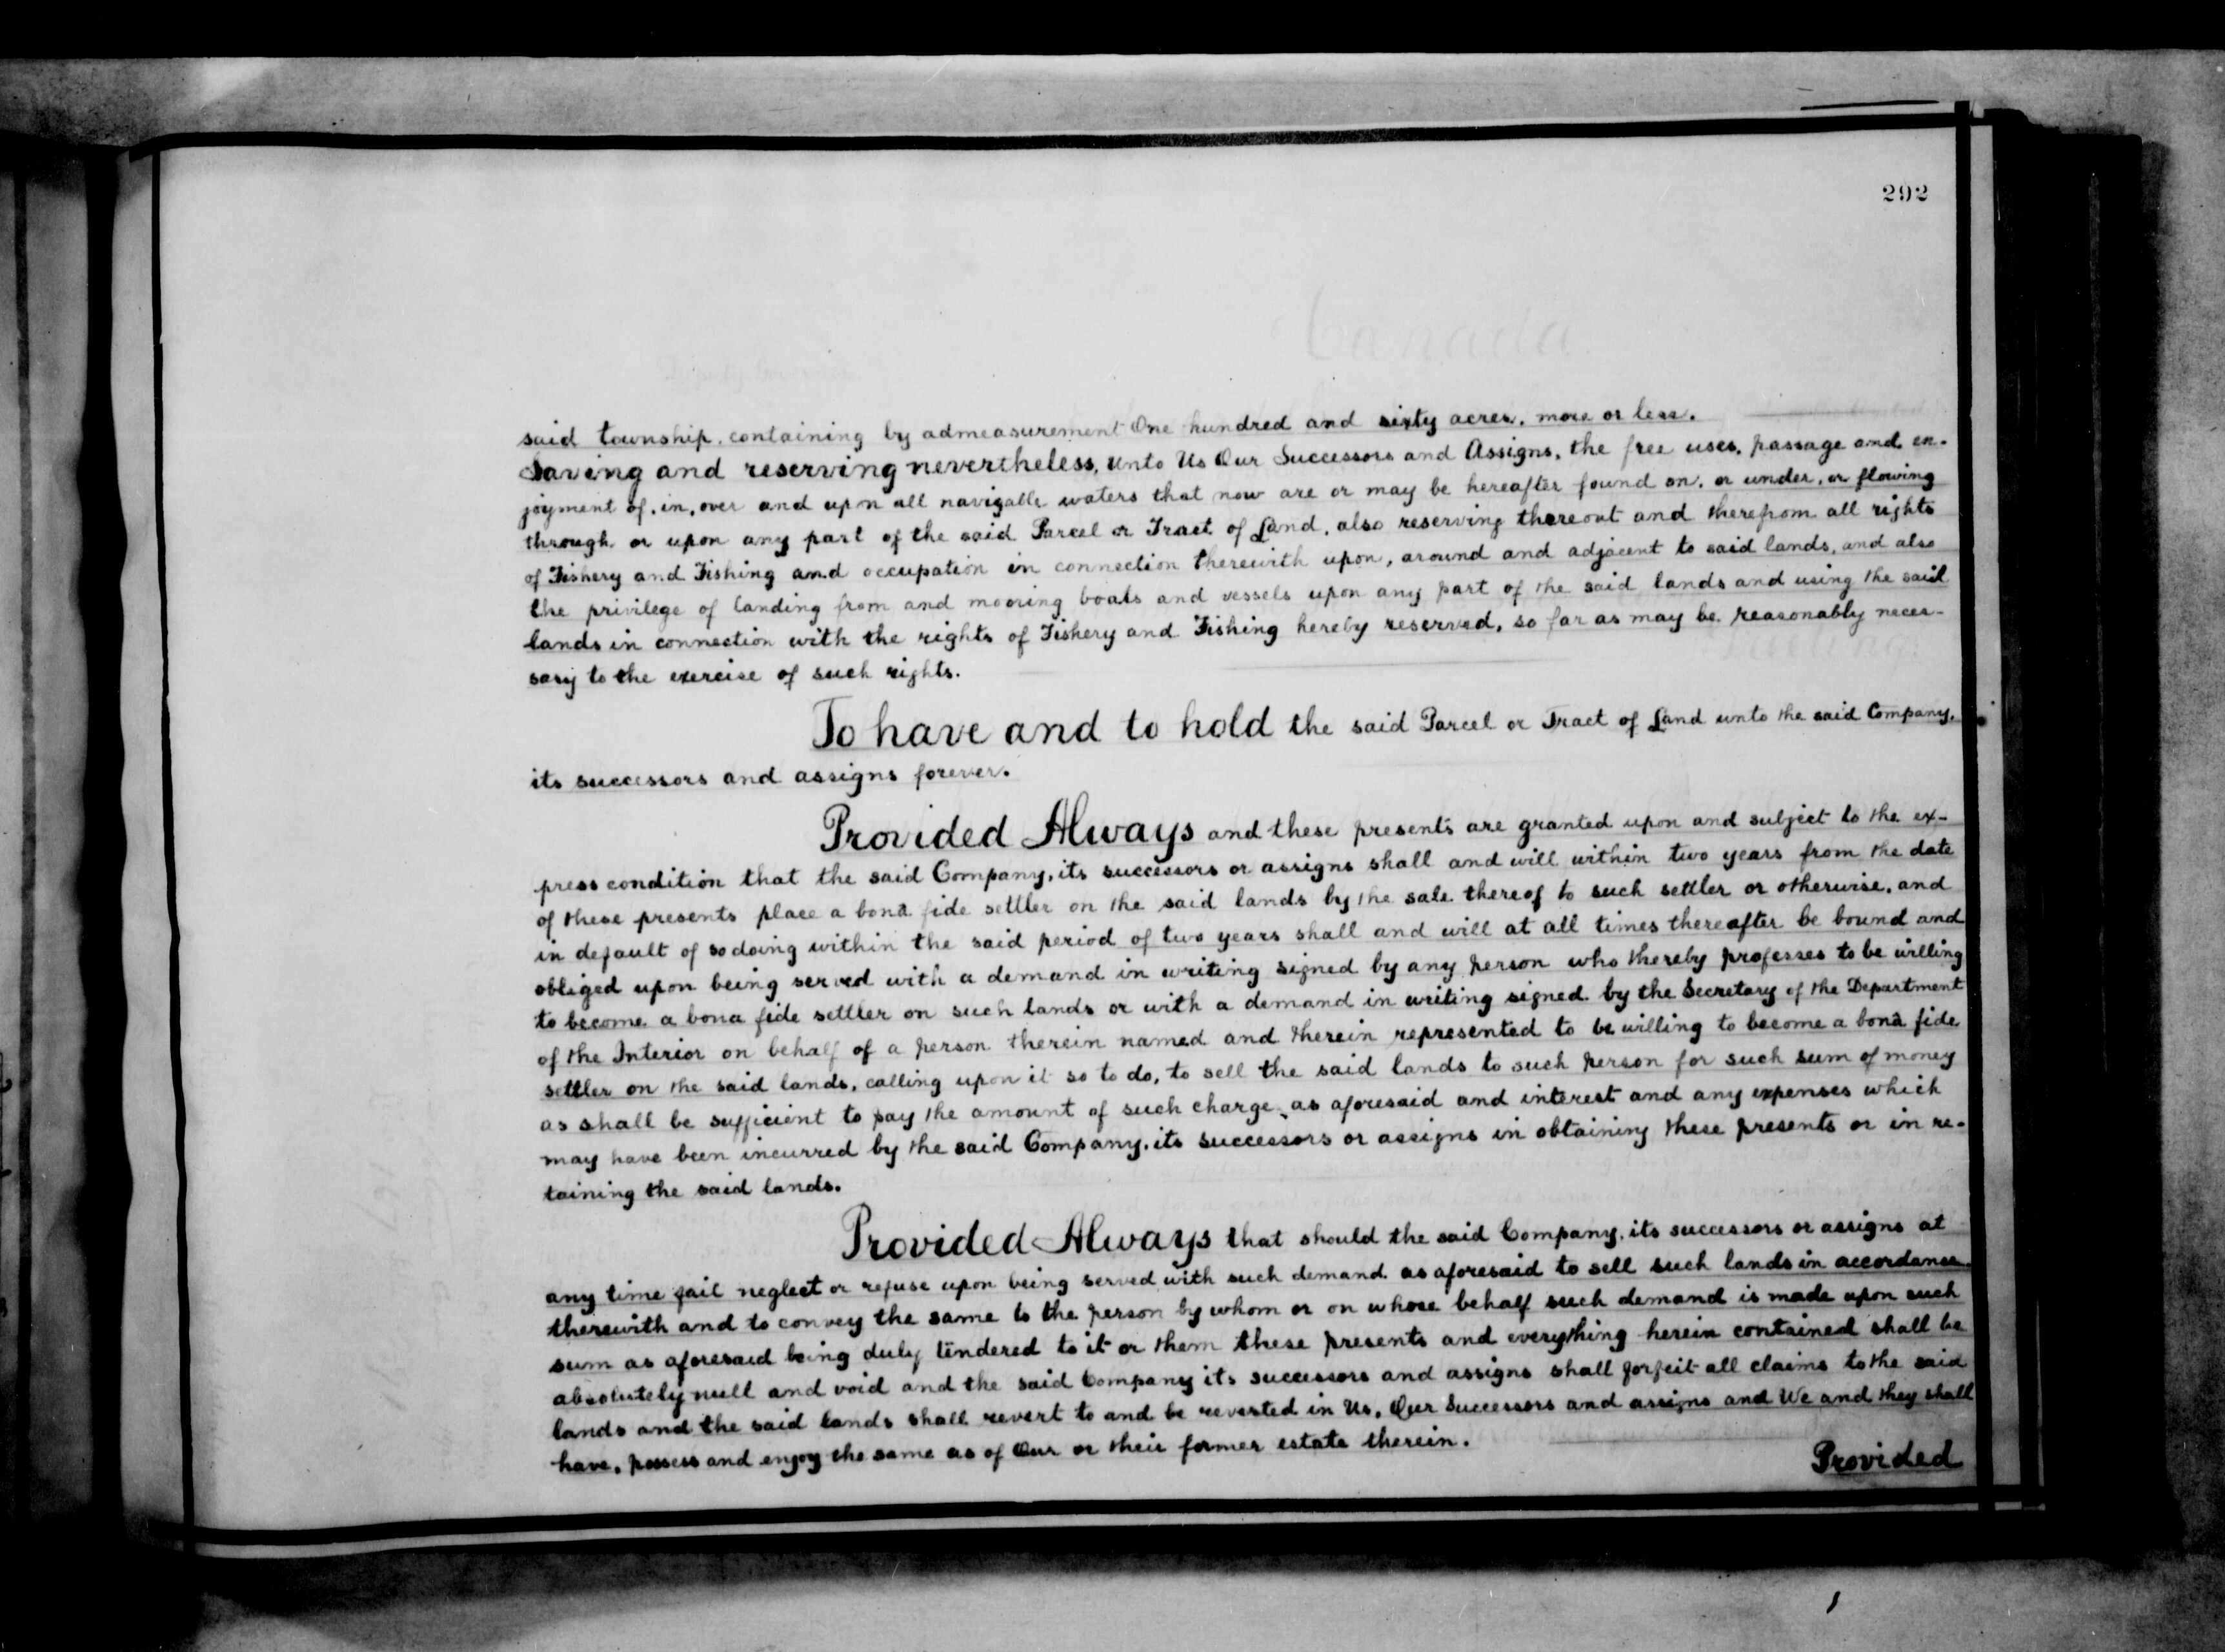 292
said township, containing by admeasurement One hundred and sixty acres, more or less.
Saving and reserving nevertheless, unto Us Our Successors and Assigns, the free uses, passage and en-
joyment of, in, over and upon all navigable waters that now are or may be hereafter found on, or under, or flowing
through or upon any part of the said Parcel or Tract of Land, also reserving thereout and therefrom all rights
of Fishery and Fishing and occupation in connection therewith upon, around and adjacent to said lands, and also
the privilege of landing from and mooring boats and vessels upon any part of the said lands and using the said
lands in connection with the rights of Fishery and Fishing hereby reserved, so far as may be reasonably neces-
sary to the exercise of such rights.
To have and to hold the said Parcel or Tract of Land unto the said Company,
its successors and assigns forever.
Provided Always and these presents are granted upon and subject to the ex-
press condition that the said Company, its successors or assigns shall and will within two years from the date
of these presents place a bonâ fide settler on the said lands by the sale thereof to such settler or otherwise, and
in default of so doing within the said period of two years shall and will at all times thereafter be bound and
obliged upon being served with a demand in writing signed by any person who thereby professes to be willing
to become a bona fide settler on such lands or with a demand in writing signed by the Secretary of the Department
of the Interior on behalf of a person therein named and therein represented to be willing to become a bonâ fide
settler on the said lands, calling upon it so to do, to sell the said lands to such person for such sum of money
as shall be sufficient to pay the amount of such charge, as aforesaid and interest and any expenses which
may have been incurred by the said Company, its successors or assigns in obtaining these presents or in re-
taining the said lands.
Provided Always that should the said Company, its successors or assigns at
any time fail neglect or refuse upon being served with such demand as aforesaid to sell such lands in accordance
therewith and to convey the same to the person by whom or on whose behalf such demand is made upon such
sum as aforesaid being duly tendered to it or them these presents and everything herein contained shall be
absolutely null and void and the said Company its successors and assigns shall forfeit all claims to the said
lands and the said lands shall revert to and be revested in Us, Our Successors and assigns and We and they shall
have, possess and enjoy the same as of Our or their former estate therein.
Provided